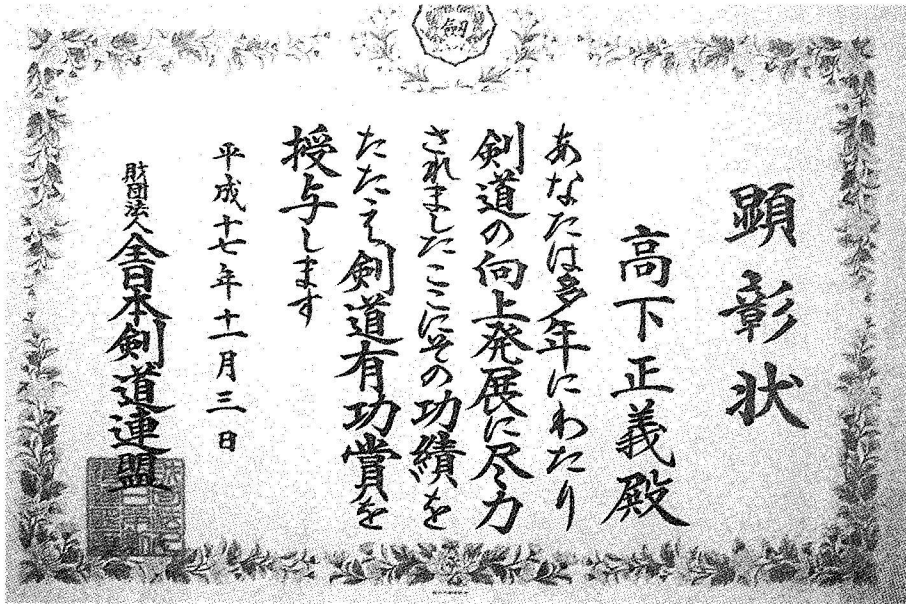 剣
顕彰状
高下正義殿
あなたは多年にわたり
剣道の向上発展に尽力
されましたここにその功績を
たたえ剣道有功賞を
授与します
平成十七年十一月三日
財団法人全日本剣道連盟